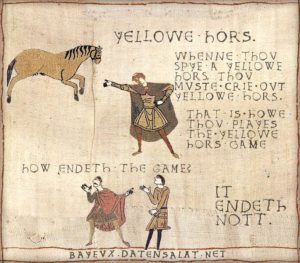 YELLOWE·HORS.
WHENNE·THOU
SPYE·A·YELLOWE
HORS·THOU
MUSTE·CRIE·OUT
YELLOWE·HORS.
THAT·IS·HOWE
THOU·PLAYES
THE·YELLOWE
HORS·GAME
HOW·ENDETH·THE·GAME?
IT
ENDETH
NOTT.
BAYEUX.DATENSALAT.NET